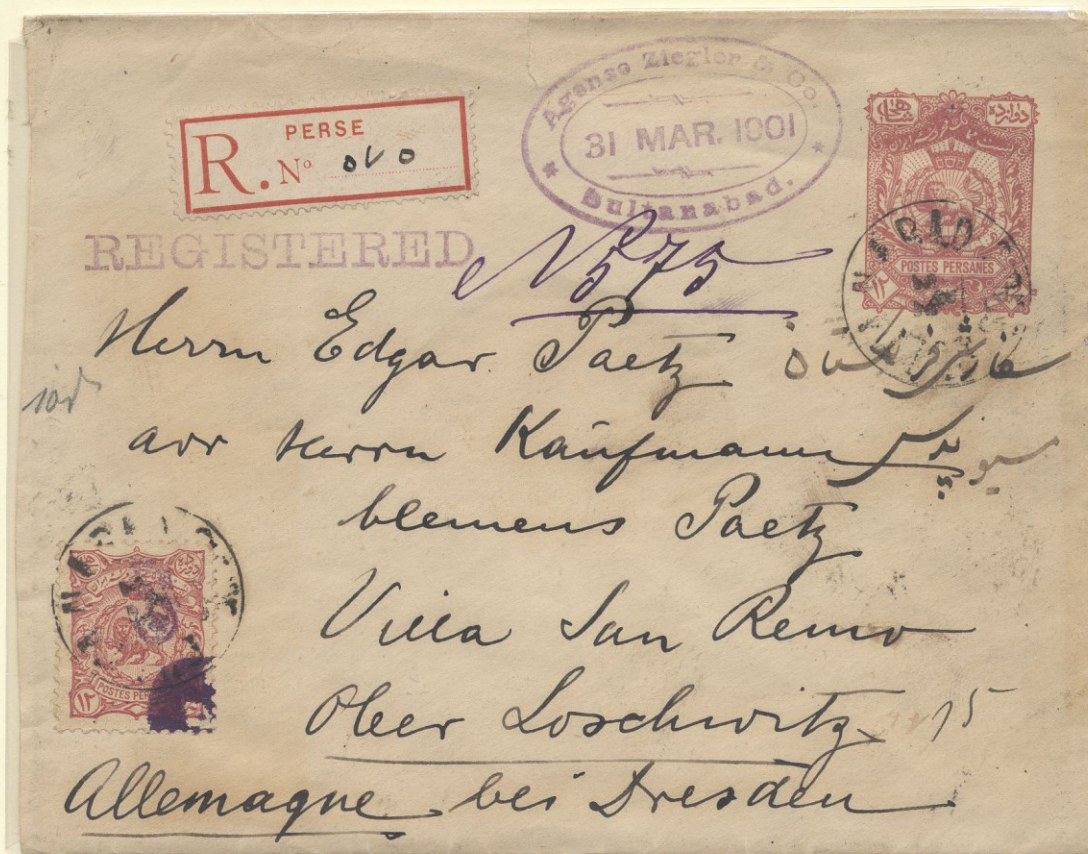 PERSE
R. Nº ۵۷۵
Agense Ziegler & Co.
31 MAR. 1901
Sultanabad.
REGISTERED
N 575
POSTES PERSANES
۱۲
Herrn Edgar Paetz
adr Herrn Kaufmann
Clemens Paetz
Villa San Remo
Ober Loschwitz
15
Allemagne bei Dresden
POSTES PER
۱۲